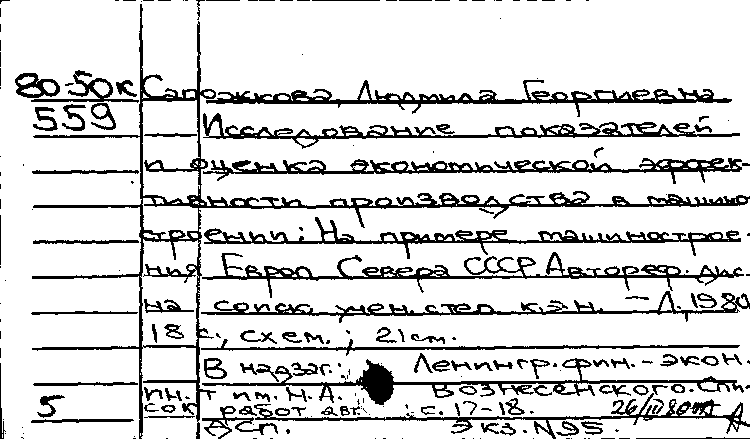 80-50к Сапожкова, Людмила Георгиевна
559 Исследование показателей
и оценка экономической эффек-
тивности производства в машино
строении: На примере машинострое-
ния Европ Севера СССР. Автореф. дис.
на соиск. учен. степ к.э.н. - Л., 1980
18 с., схем.; 21 см.
В надзаг.: Ленингр. фин.-экон.
ин-т им. Н.А. Вознесенского. Спи-
5 сок работ авт.: с. 17-18. 26/III 80
ДСП. Экз. N95.